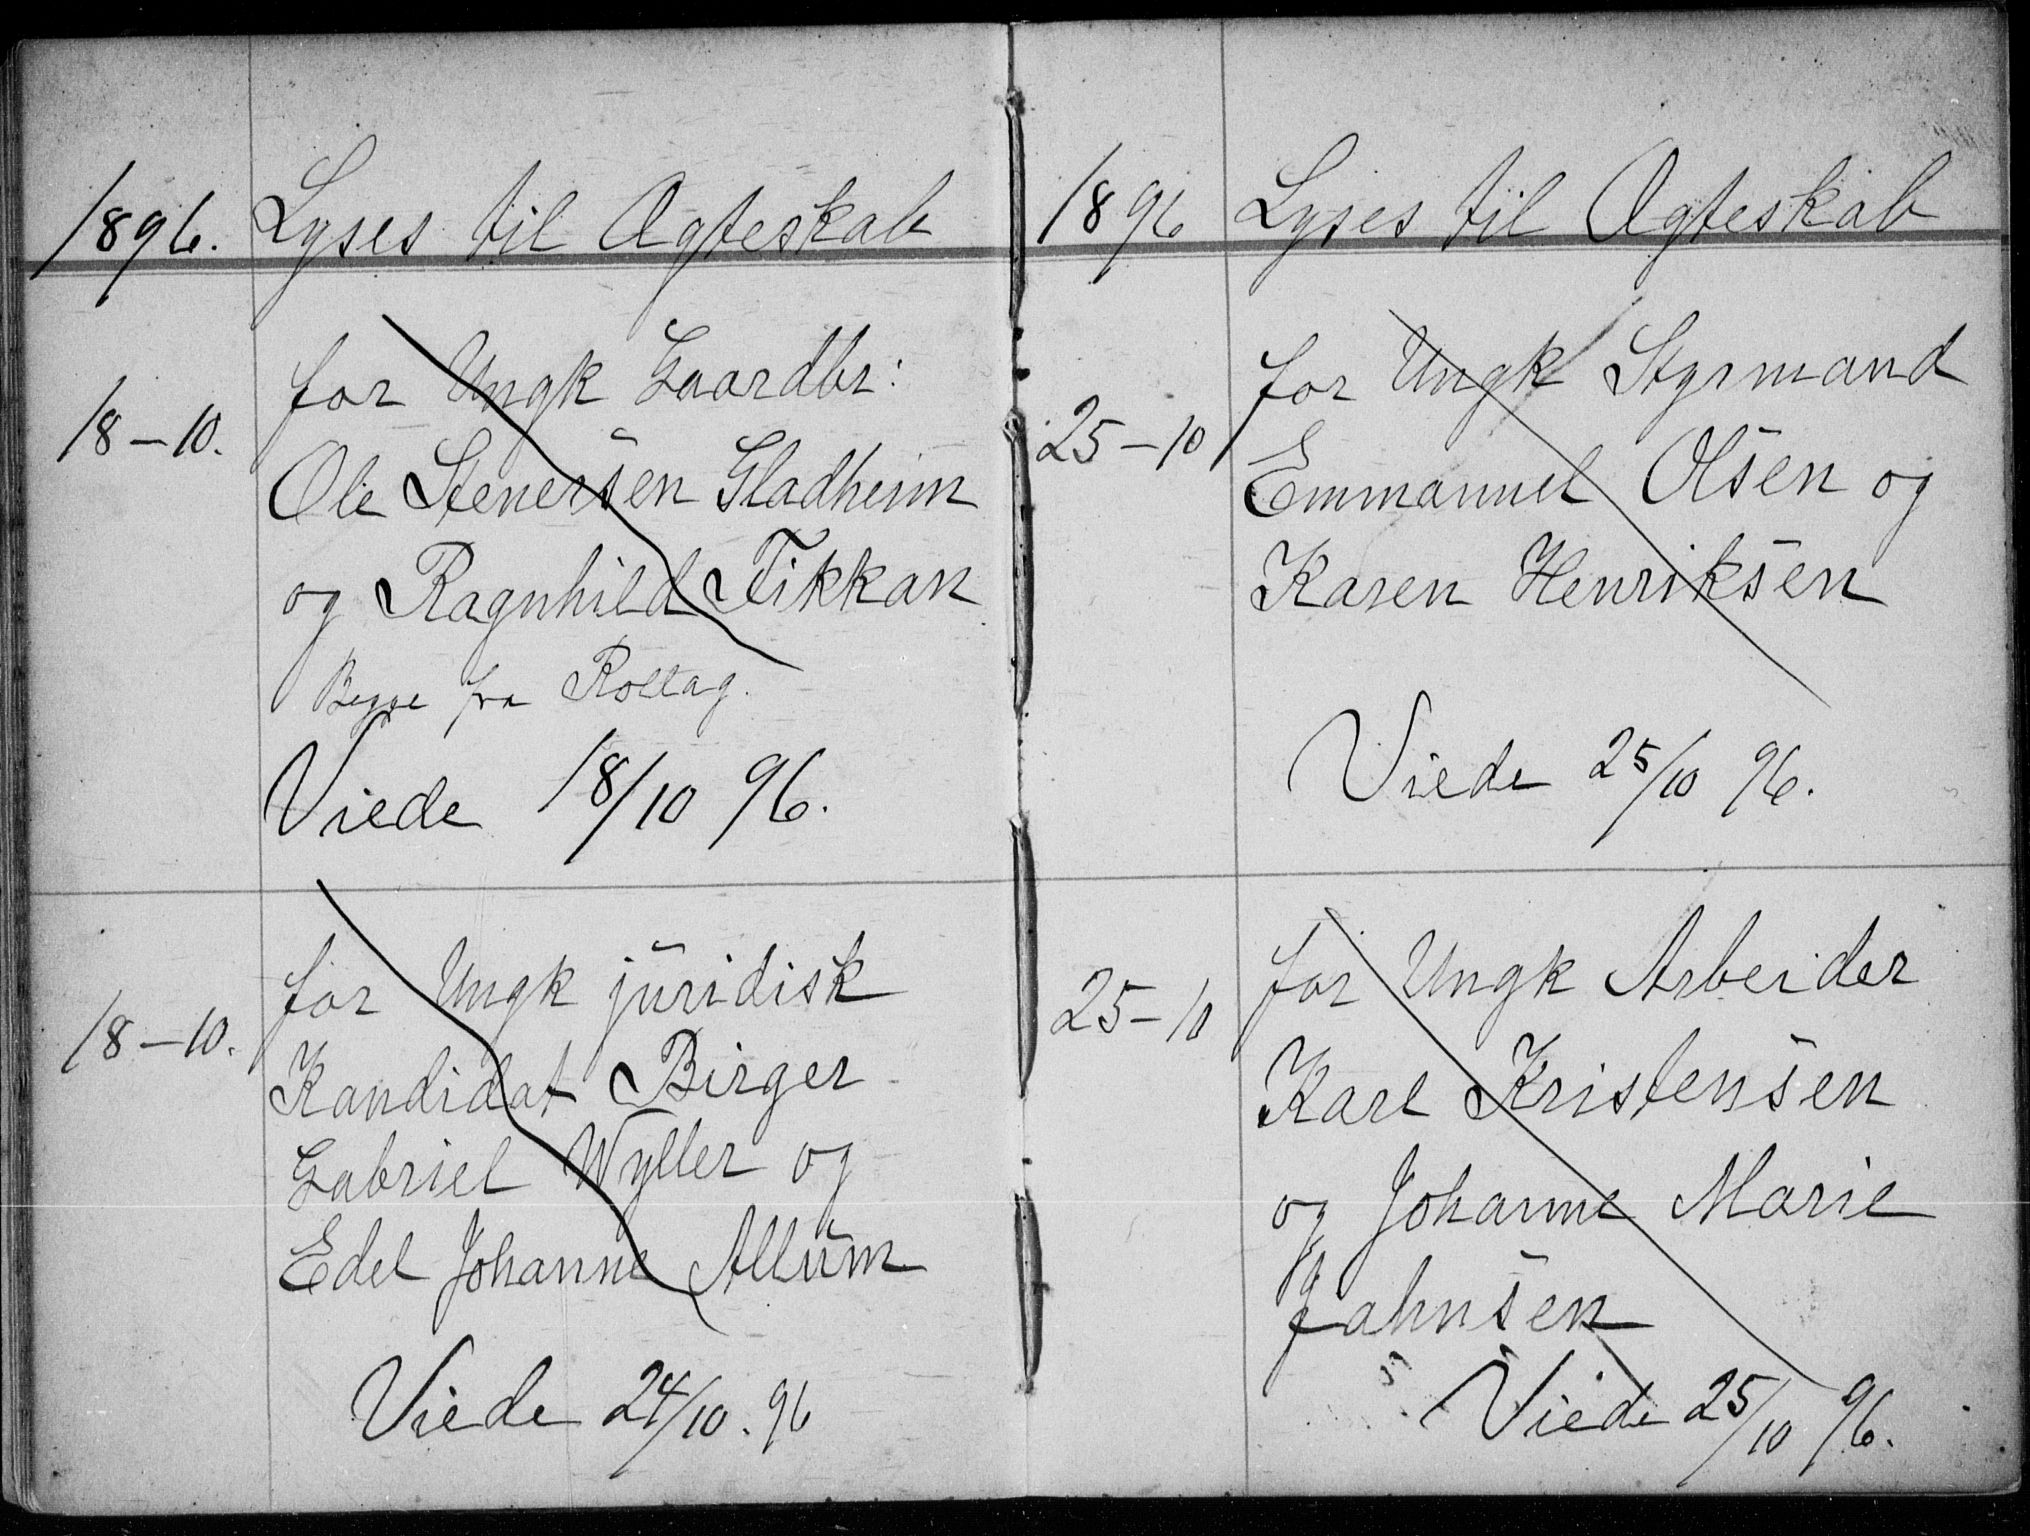 1896. Lyses til Ægteskab
18-10. for Ungk Gaardbr:
Ole Stenersen Gladheim
og Ragnhild Fikkan
Begge fra Rollag.
Viede 18/10 96.
18-10. for Ungk juridisk
Kandidat Birger
Gabriel Wyller og
Edel Johanne Allum
Viede 24/10. 96
1896 Lyses til Ægteskab
25-10 for Ungk Styrmand
Emmanuel Olsen og
Karen Henriksen
Viede 25/10 96.
25-10 for Ungk Arbeider
Karl Kristensen
og Johanne Marie
Jahnsen
Viede 25/10 96.